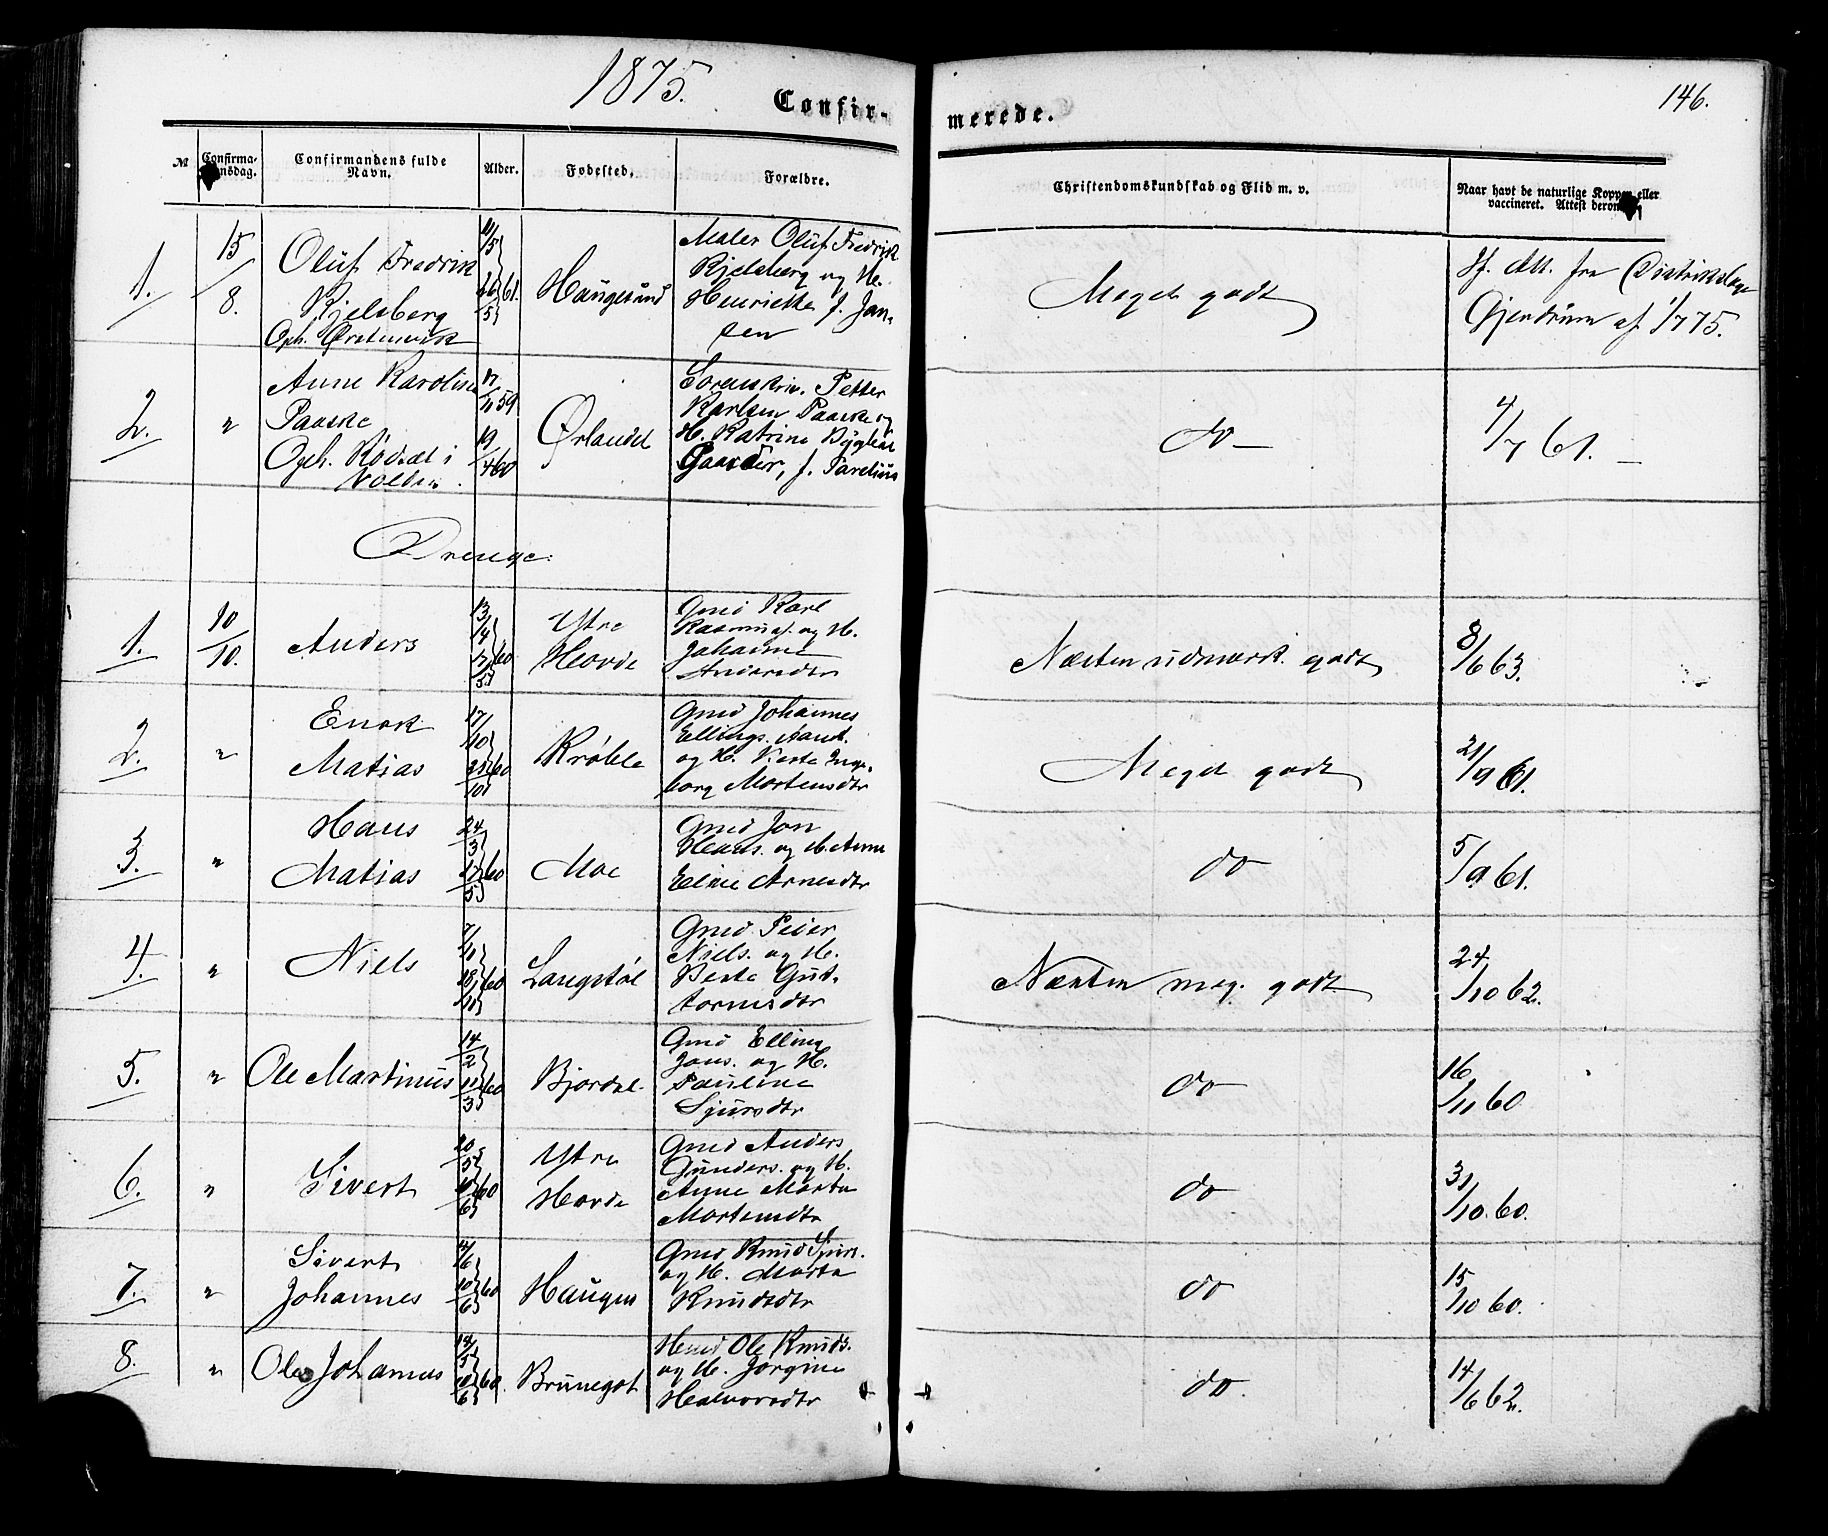 1875.
Confir-
merede.
146.
№
Confirmationsdag.
Confirmandens fulde Navn.
Alder.
Fødested.
Forældre.
Christendomskundskab og Flid m. v.
Naar havt de naturlige Kopper eller vaccineret. Attest derom.
1.
15/8.
Oluf Fredrik
Kjelsberg
Oph.
11/5
26/5 61.
Haugesund
Maler Oluf Fredrik
Kjelsberg og H.
Henriette f. Jan-
sen
Meget godt
If. Att. fra Distriktslæge
Gjendrum af 1/7 75.
2.
"
Anne Karoline
Paaske
Oph. Rødsæt i
Volden.
17/11 59
19/4 60
Ørlandet
Sorenskriv. Petter
Karlsen Paaske og
H. Katrine
f. Parelius
do —
4/7 61. —
Drenge.
1.
10/10.
Anders
13/4
17/5 60
Ytre
Hovde
Gmd Karl
Rasmus. og H.
Johanne
Andersdtr
Næsten udmærk. godt
8/6 63.
2.
"
Enok
Matias
17/10
21/10 60
Krøkle
Gmd Johannes
Ellings.
og H. Berte Inge-
borg Mortensdtr
Meget godt
21/9 61.
3.
"
Hans
Matias
24/3
27/5 60
Moe
Gmd Jon
Hans. og H. Anne
Eline Arnesdtr
do
5/9 61.
4.
"
Niels
7/11
18/11 60
Langstøl
Gmd. Peder
Niels. og H.
Berte Gut-
tormsdtr
Næsten meg. godt
24/10 62.
5.
"
Ole Martinus
14/2
11/3 60
Bjørdal
Gmd Elling
Jons. og H.
Pauline
Sjursdtr
do
16/11 60
6.
"
Sivert
20/5
10/6 60
Ytre
Hovde
Gmd Anders
Gunders. og H.
Anne Marta
Mortensdtr
do
31/10. 60.
7.
"
Sivert
Johannes
4/6
10/6 60
Haugen
Gmd Knud Sjurs.
og H. Marta
Knudsdtr
do
15/10 60.
8.
"
Ole Johannes
14/5
10/6 60.
Brunegot
Hmd Ole Knuds.
og H. Jørgine
Halvorsdtr
do.
14/6 62.